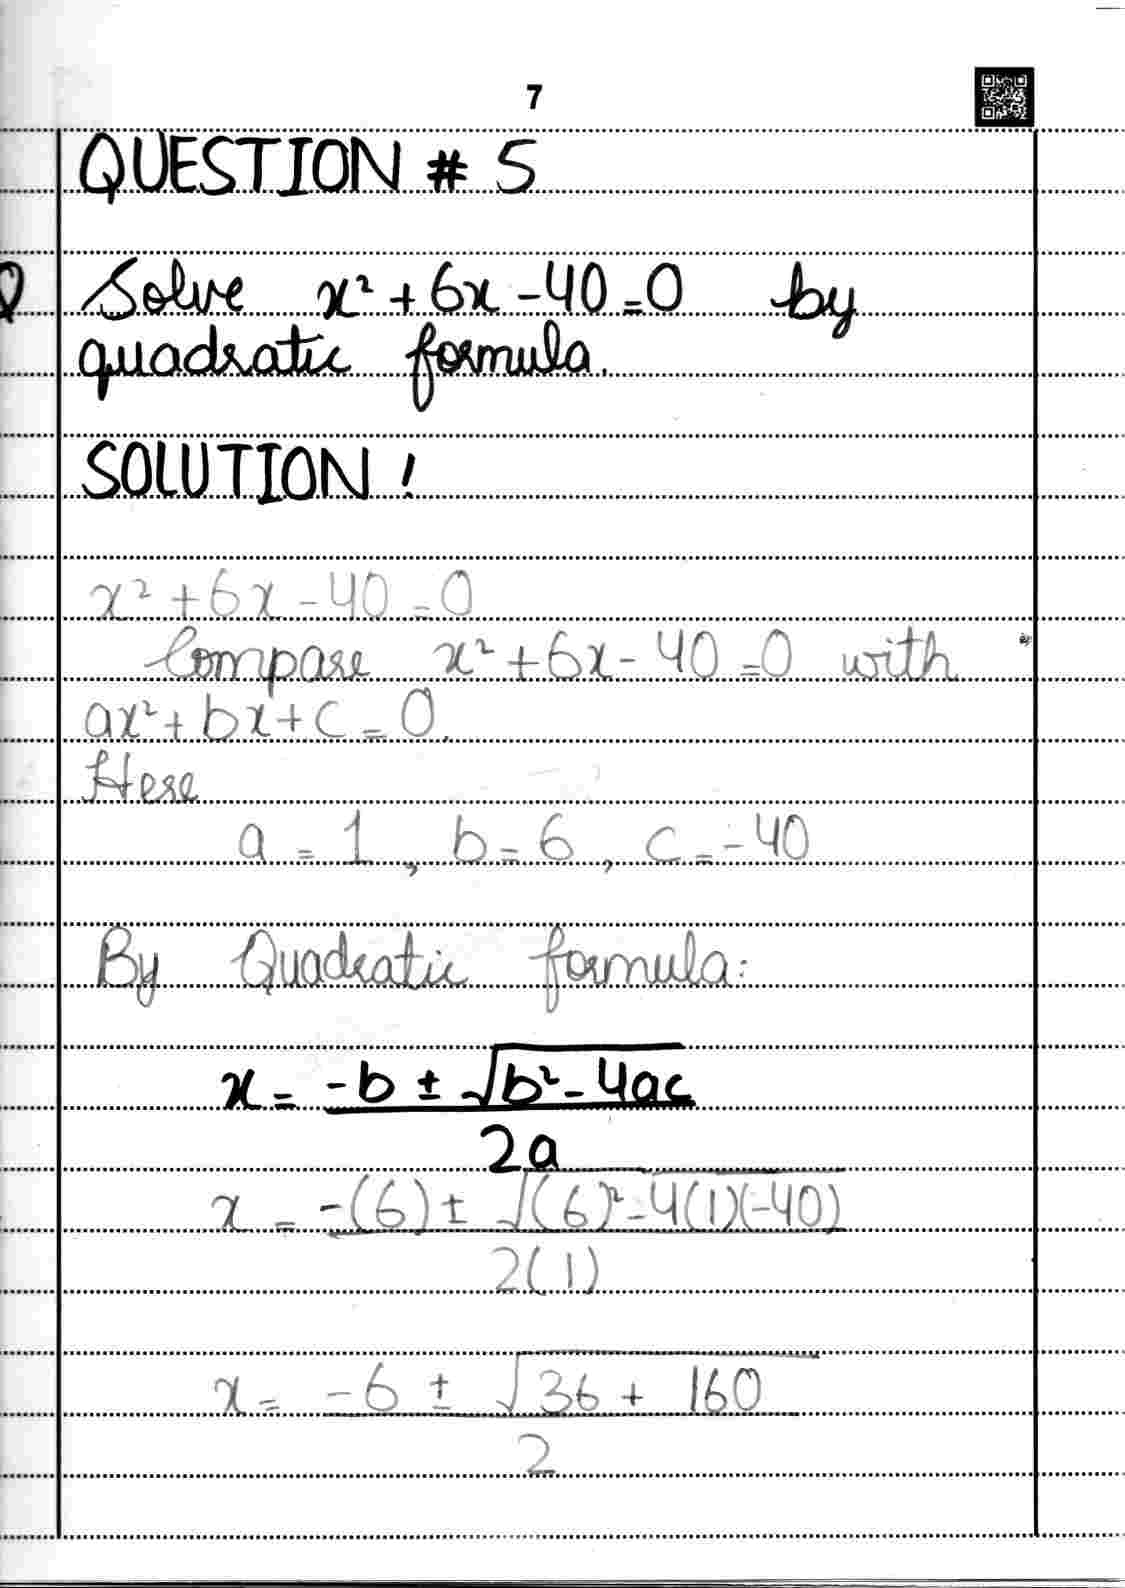 7
QUESTION # 5
Q Solve x² + 6x - 40 = 0 by
quadratic formula.
SOLUTION !
x² + 6x - 40 = 0
Compare x² + 6x - 40 = 0 with
ax² + bx + c = 0.
Here
a = 1 , b = 6 , c = -40
By Quadratic formula:
x = -b ± √b² - 4ac
2a
x = -(6) ± √(6)² - 4(1)(-40)
2(1)
x = -6 ± √36 + 160
2